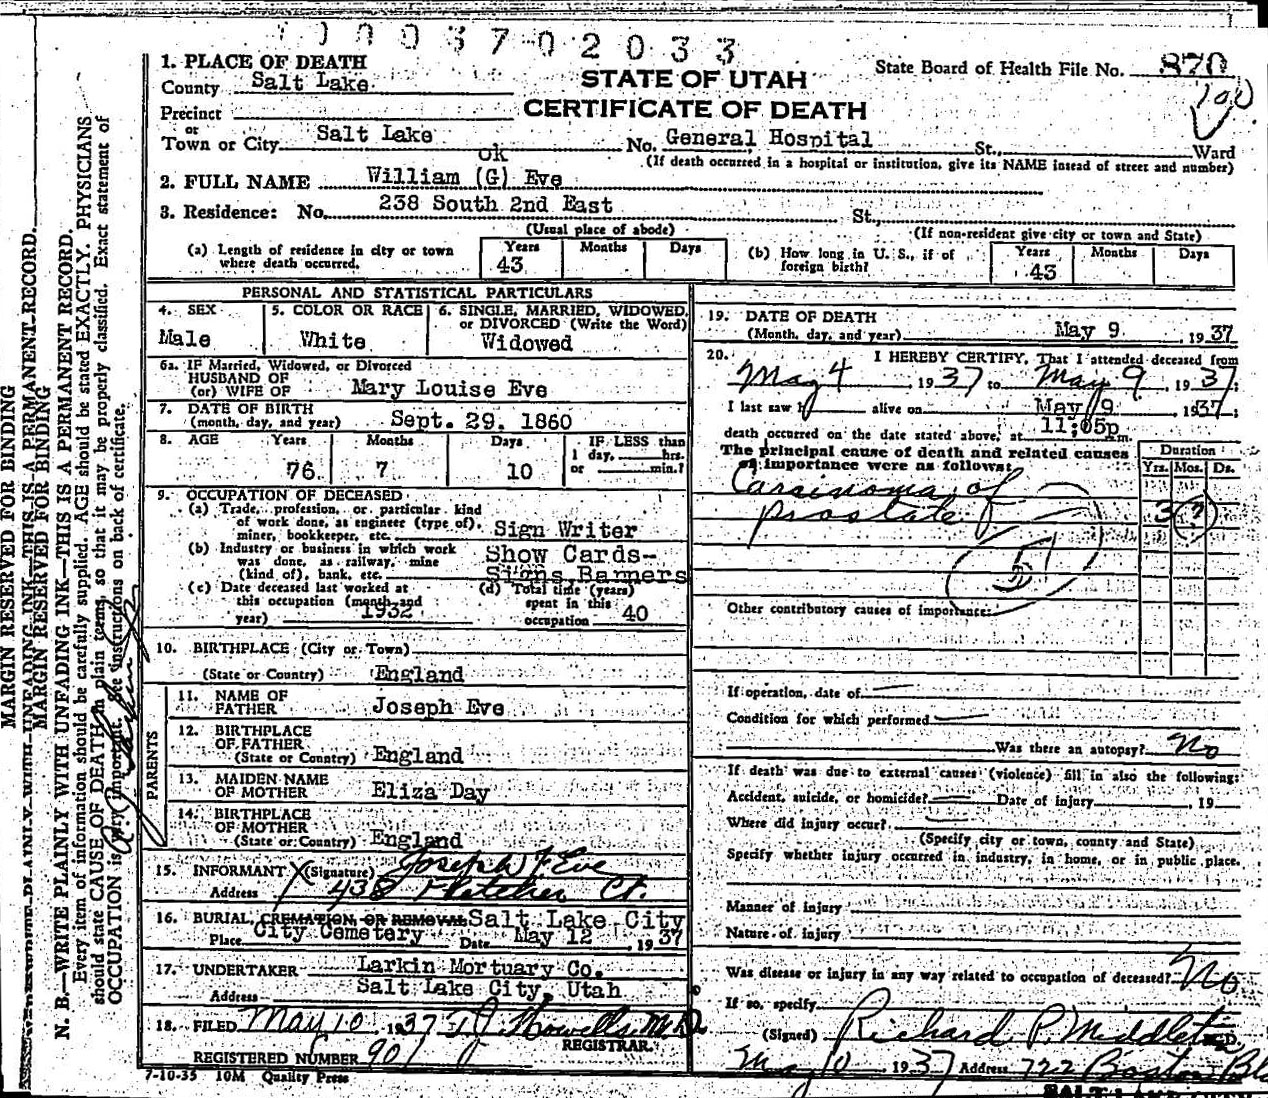 0003702033
STATE OF UTAH
CERTIFICATE OF DEATH
State Board of Health File No. 870
100
1. PLACE OF DEATH
County Salt Lake
Precinct
or
Town or City Salt Lake No. General Hospital St., Ward
(If death occurred in a hospital or institution, give its NAME insead of street and number)
ok
2. FULL NAME William (G) Eve
3. Residence: No. 238 South 2nd East St.,
(Usual place of abode) (If non-resident give city or town and State)
(a) Length of residence in city or town where death occurred. Years 43 Months Days
(b) How long in U. S., if of foreign birth? Years 43 Months Days
PERSONAL AND STATISTICAL PARTICULARS
4. SEX Male
5. COLOR OR RACE White
6. SINGLE, MARRIED, WIDOWED, or DIVORCED (Write the Word) Widowed
6a. IF Married, Widowed, or Divorced
HUSBAND OF
(or) WIFE OF Mary Louise Eve
7. DATE OF BIRTH
(month, day, and year) Sept. 29, 1860
8. AGE Years 76 Months 7 Days 10 IF LESS than
1 day, hrs.
or min.?
9. OCCUPATION OF DECEASED
(a) Trade, profession, or particular kind
of work done, as engineer (type of),
miner, bookkeeper, etc. Sign Writer
(b) Industry or business in which work
was done, as railway, mine
(kind of), bank, etc. Show Cards-
Signs, Banners
(c) Date deceased last worked at
this occupation (month and
year) 1932
(d) Total time (years)
spent in this
occupation 40
10. BIRTHPLACE (City or Town)
(State or Country) England
PARENTS
11. NAME OF
FATHER Joseph Eve
12. BIRTHPLACE
OF FATHER
(State or Country) England
13. MAIDEN NAME
OF MOTHER Eliza Day
14. BIRTHPLACE
OF MOTHER
(State or Country) England
15. INFORMANT X (Signature) Joseph F. Eve
Address 438 Fletcher Ct.
16. BURIAL, CREMATION, OR REMOVAL Salt Lake City
Place City Cemetery Date May 12, 1937
17. UNDERTAKER Larkin Mortuary Co.
Address Salt Lake City, Utah
18. FILED May 10, 1937 Howells M.D.
REGISTRAR.
REGISTERED NUMBER 901
7-10-35 10M Quality Press
19. DATE OF DEATH
(Month, day, and year) May 9 1937
20. I HEREBY CERTIFY, That I attended deceased from
May 4, 1937 to May 9, 1937;
I last saw h alive on May 9 1937;
death occurred on the date stated above, at 11;05p m.
The principal cause of death and related causes
of importance were as follows:
Duration
Yrs. Mos. Ds.
Carsinoma of
prostate 3 (?)
51
Other contributory causes of importance:
If operation, date of
Condition for which performed
Was there an autopsy? No
If death was due to external causes (violence) fill in also the following:
Accident, suicide, or homicide? Date of injury , 19
Where did injury occur?
(Specify city or town, county and State)
Specify whether injury occurred in industry, in home, or in public place.
Manner of injury
Nature of injury
Was disease or injury in any way related to occupation of deceased? No
If so, specify
(Signed) Richard P. Middleton M.D.
May 10 1937 Address 722 Boston Bl
SALT LAKE CITY
MARGIN RESERVED FOR BINDING
MARGIN RESERVED FOR BINDING
WRITE PLAINLY WITH UNFADING INK—THIS IS A PERMANENT RECORD.
N. B.—WRITE PLAINLY WITH UNFADING INK—THIS IS A PERMANENT RECORD.
Every item of information should be carefully supplied. AGE should be stated EXACTLY. PHYSICIANS
should state CAUSE OF DEATH in plain terms, so that it may be properly classified. Exact statement of
OCCUPATION is very important. See instructions on back of certificate.